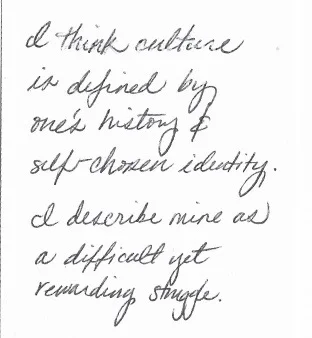 I think culture
is defined by
one's history &
self-chosen identity.
I describe mine as
a difficult yet
rewarding struggle.